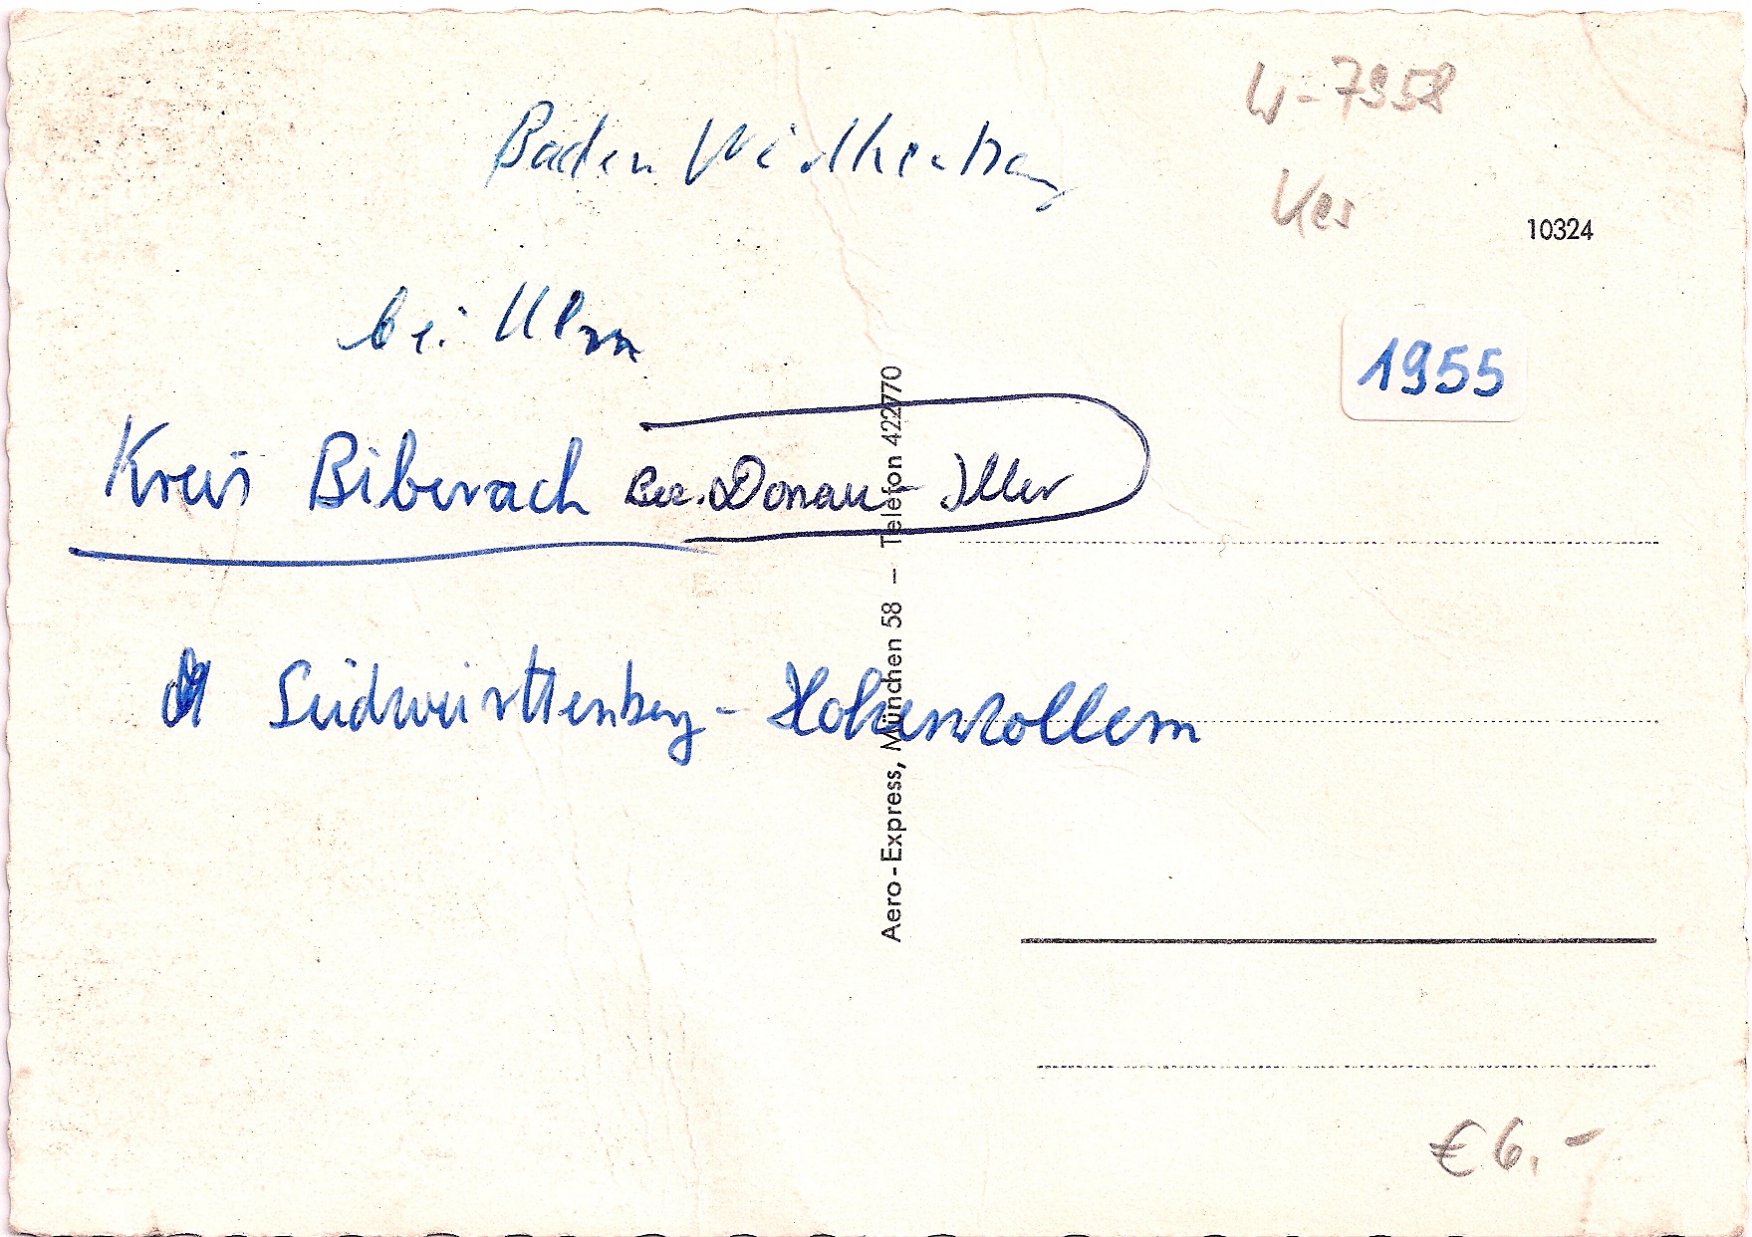 W-7958
Baden Württemberg
Ues
10324
bei Ulm
1955
Kreis Biberach Bez. Donau-Iller
Südwürttemberg-Hohenzollern
Aero-Express, München 58 – Telefon 422770
€ 6,-